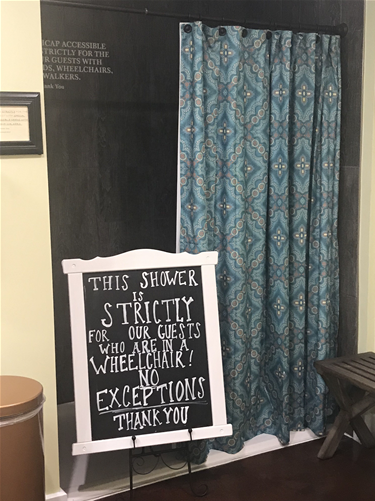 ICAP ACCESSIBLE
TRICTLY FOR THE
R GUESTS WITH
DS, WHEELCHAIRS,
WALKERS.
ank You
THIS SHOWER
IS
STRICTLY
FOR OUR GUESTS
WHO ARE IN A
WHEELCHAIR!
NO
EXCEPTIONS
THANK YOU